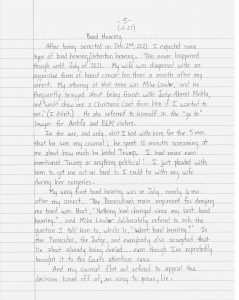 - 5 -
(of 27)
Bond Hearing
After being arrested on Feb 2nd, 2021 I expected some
type of bond hearing/detention hearing. This never happened
though until July of 2021. My wife was diagnosed with an
aggressive form of breast cancer less than a month after my
arrest. My attorney at that time was Mike Lawlor, and he
frequently bragged about being friends with Judge Amit Mehta,
and "would show me a Christmas Card from him if I wanted to
see." (I didn't). He also referred to himself as the "go to"
lawyer for Antifa and BLM rioters.
In the one, and only, visit I had with him for the 5 mos
that he was my counsel; he spent 10 minutes screaming at
me about how much he hated Trump. I had never even
mentioned Trump or anything political! I just pleaded with
him to get me out on bond so I could be with my wife
during her surgeries.
My very first bond hearing was in July, nearly 6 mo.
after my arrest. The Prosecution's main argument for denying
me bond was that, "Nothing had changed since my last bond
hearing.", and Mike Lawlor deliberately refused to ask the
question I told him to, which is, "What bond hearing?" So
the Prosecutor, the Judge, and everybody else accepted that
lie about already being denied... even though I've repeatedly
brought it to the Court's attention since.
And my counsel flat out refused to appeal the
decision based off of, an easy to prove, lie.